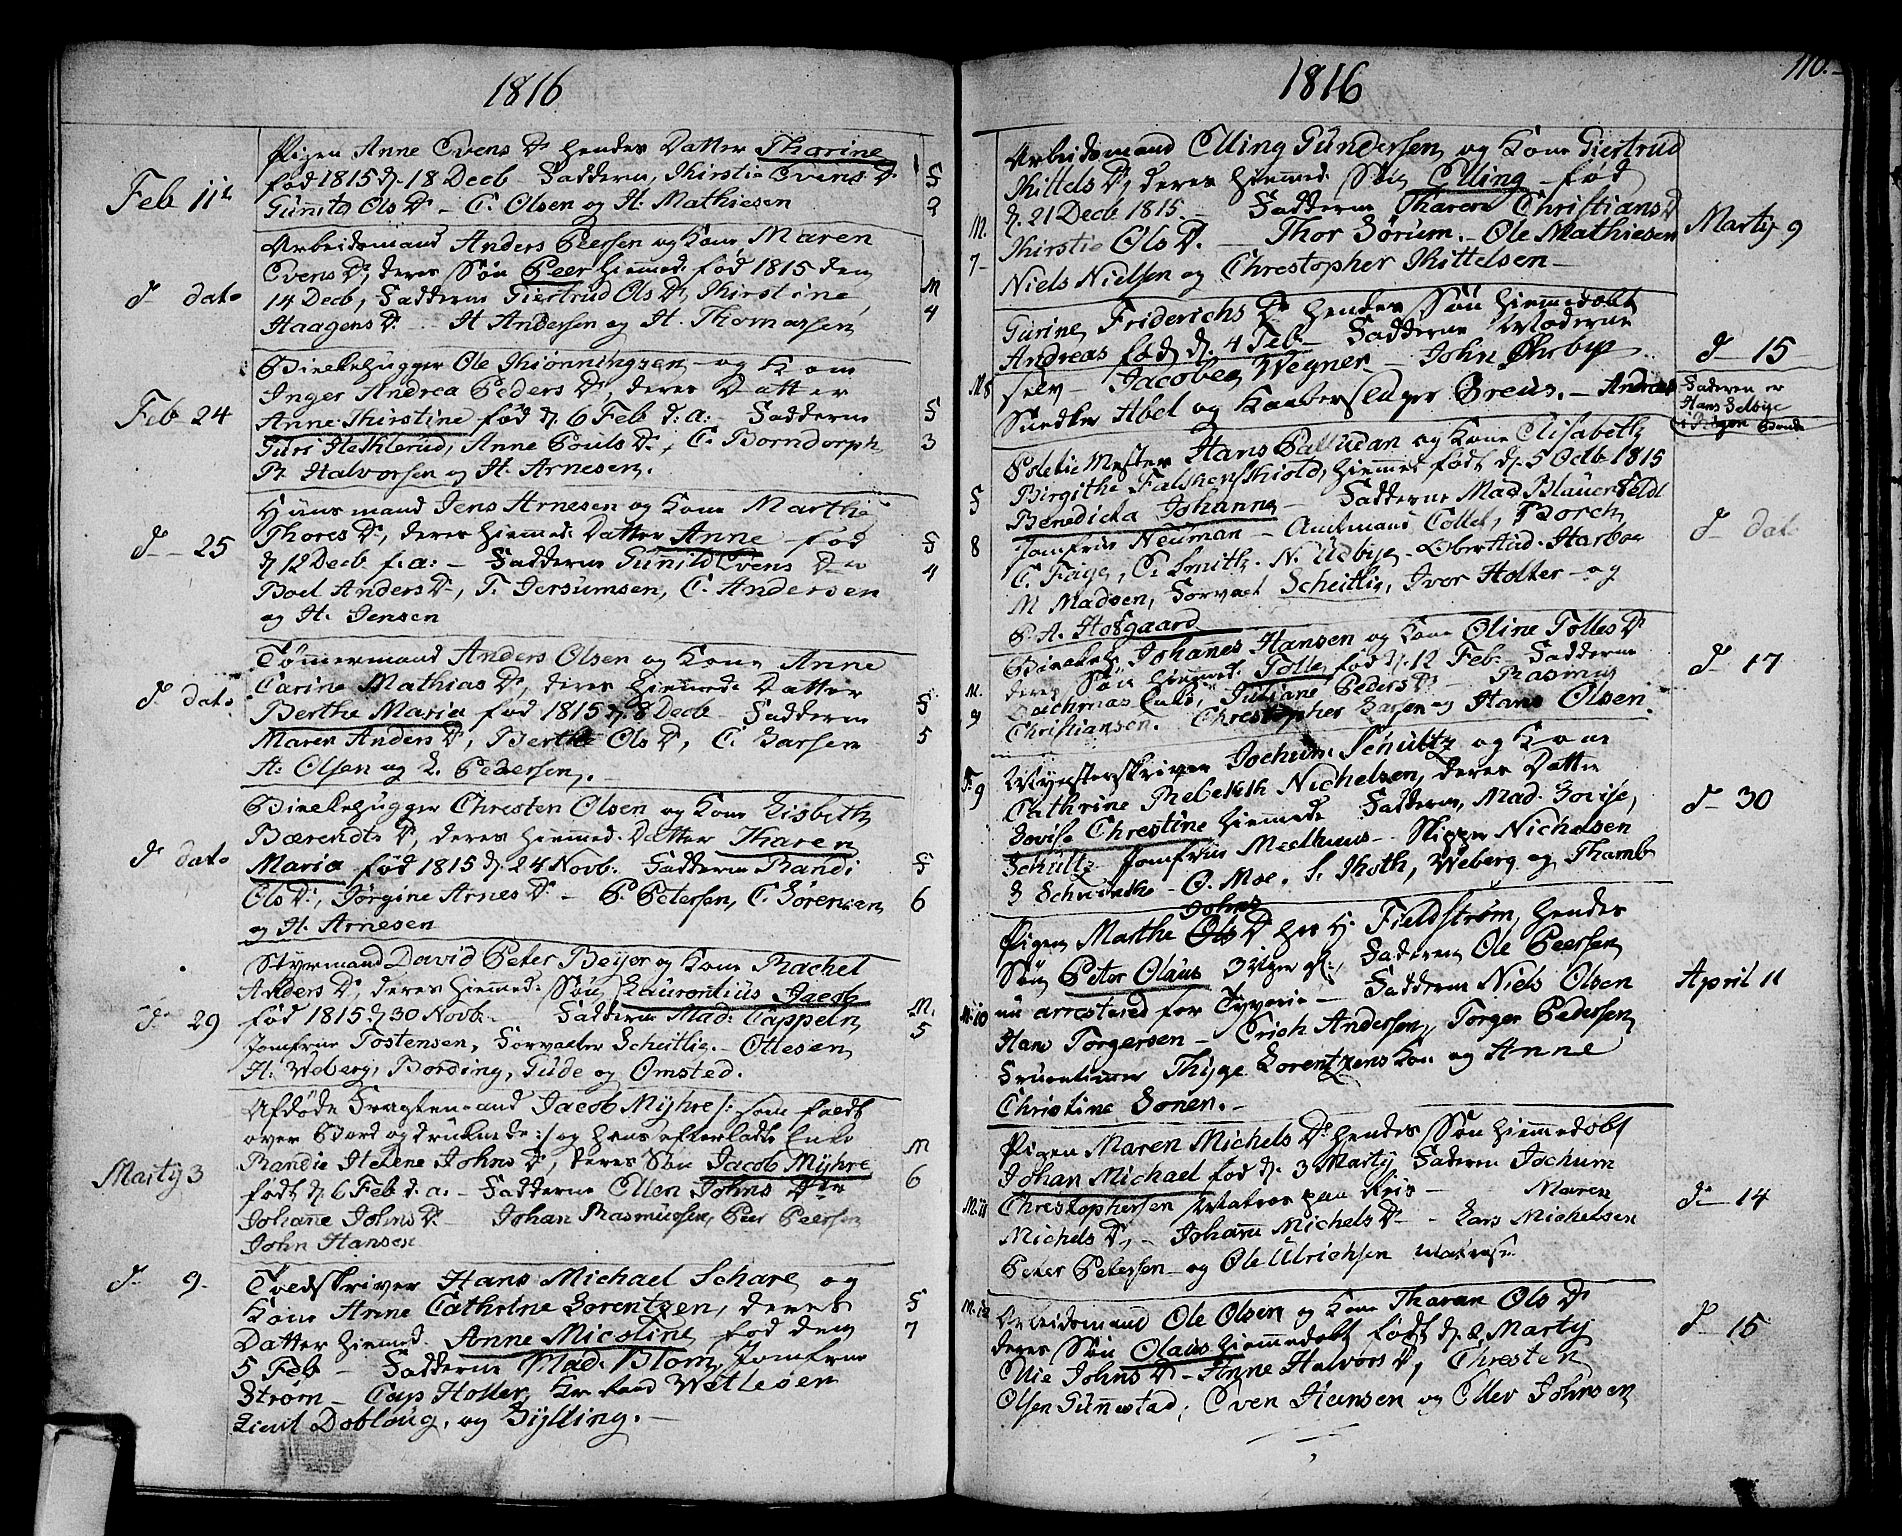 1816
Feb 11te
Pigen Anne Evens Dr hendes Datter Thorine
fød 1815 d. 18 Decb – Fadderne, Kirstie Evens Dr
Gunild Ols Dr – C. Olsen og H. Mathiesen
F
2
d. dato
Arbeidsmand Anders Peersen og Kone Maren
Evens Dr, deres Søn Peer hiemmed. fød 1815 den
14 Decb, Fadderne Giertrud Ols Dr, Kirstine
Haagens Dr – H Andersen og H. Thomassen
M
4
Feb 24
Birkehugger Ole Kiønningsen – og Kone
Inger Andrea Peders Dr, deres Datter
Anne Kirstine fød d. 6 Feb d: a: – Fadderne
Guri Hekklerud, Anne Pouls Dr, C. Borndorph
R. Halvorsen og H. Arnesen.
F
3
d – 25
Huusmand Jens Arnesen og Kone Marthe
Thores Dr, deres hiemmed. Datter Anne – fød
d 12 Decb f: a: – Fadderne Gunild Evens Dr
Boel Anders Dr, T. Jersumsen, C. Andersen
og H. Jensen
F
4
d. dato
Tømmermand Anders Olsen og Kone Anne
Carine Mathias Dr, deres hiemmed. Datter
Berthe Maria fød 1815 d 8 Decb – Fadderne
Maren Anders Dr, Berthe Ols Dr, C. Larsen
A: Olsen og L. Pedersen. –
F
5
d. dato
Birkehugger Christen Olsen og Kone Lisbeth
Bærendts Dr, deres hiemmed. Datter Tharen
Maria fød 1815 d. 24 Novb. Fadderne Randi
Ols Dr, Jørgine Arnes Dr – P. Petersen, C. Sørensen
og H. Arnesen
F
6
d. 29
Styrmand David Peter Beijer og Kone Rachel
Anders Dr, deres hiemmed. Søn, Laurentius Jacob
fød 1815 d 30 Novb. – Fadderne Mad: Cappeln
Jomfrue Tostensen, Forvalter Scheitlie – Ottesen
H. Weberg, Bording, Gude og Omsted.
M.
5
Marty 3
Afdøde Fragtemand Jacob Myhre /: som faldt
over Bord og druknede :/ og hans efterladte Enke
Randie Helene Johns Dr, deres Søn Jacob Myhre
født d. 6 Feb d. a. – Fadderne Ellen Johns Dr
Johane Johns Dr – Johan Rasmussen, Peer Peersen
John Hansen
M
6
d. 9.
Toldskriver Hans Michael Schare og
Kone Anne Cathrine Lorentzen, deres
Datter hiemmed. Anne Nicoline fød den
5 Feb – Fadderne Mad. Blom, Jomfrue
Strøm – Cap Holler, Wetlesen
Lieut Dobloug, og Gylling. –
F
7
1816
110.
Arbeidsmand Elling Gundersen og Kone Giertrud
Kittels Dr, deres hiemmed. Søn Elling – fød
d. 21 Decb 1815. – Fadderne Tharen Christians Dr
Kirstie Ols Dr. – Thor Sørum. – Ole Mathiesen
Niels Nielsen og Christopher Kittelsen –
M.
7
Marty 9
Gurine Friderichs Dr hendes Søn hiemmedøbt
Andreas fød d. 4 Feb – Fadderne Moderne
selv – Jacobea Wegner – John Ourbye
Snedker Abel og Kaabersledger Breus. – Andreas
M 8
d 15
Faderen er
Hans Selbye
Politie Mester Hans Palludan og Kone Elisabeth
Birgithe Falshenskiold, hiemmed født d. 5 Octb 1815
Benedicta Johanna – Fadderne Mad Blauenfeldt
Jomfrue Neuman – Amtmand Collet, Borch
C. Faige, C. Smith – N. Udbye – Oberstlud. Harboe
M Madsen, Forvalt Scheitlie, Iver Holter – og
P. A. Hofgaard
F
8
d – dato
Birkeh. Johanes Hansen og Kone Oline Tolles Dr
deres Søn hiemmed. Tolle, fød d. 12 Feb. Fadderne
Enke, Juliane Peders Dr – Rasmus
Christiansen. Christopher Larsen og Hans Olsen.
M.
9
d – 17
Mynsterskriver Jochum Schultz og Kone
Cathrine Rebekkh Nichelsen, deres Datter
Lovise Christine hiemmed. Fadderne, Mad. Lovise
Schultz Jomfrue Meelhuus – Skipper Nichelsen
– O. Moe. S. Thoth, Weberg og Thamb
F.
9
d – 30
Pigen Marthe Johns Dr hos H. Fieldstrøm, hendes
Søn Peter Olaus 3 Uger gl., Faderen Ole Peersen
nu arresteret for Tyverie – Fadderne Niels Olsen
Hans Torgersen – Erich Andersen, Torger Pedersen
Thyge Lorentzens Kone og Anne
Christine Sonen. –
M: 10
April 11
Pigen Maren Michels Dr hendes Søn hiemmedøbt
Johan Michael fød d. 3 Marty, Faderen Jochum
Christophersen Matros paa Kris – Maren
Michels Dr, – Johane Michels Dr – Lars Michelsen
Peter Petersen – og Ole Ulrichsen
M. 11
d – 14
Arbeidsmand Ole Olsen og Kone Tharan Ols Dr
deres Søn Olaus hiemmedøbt født d. 2 Marty
Elie Johns Dr – Anne Halvors Dr, Christen
Olsen Gunnestad, Even Hansen og Ellev Johnsen
M. 12
d – 15